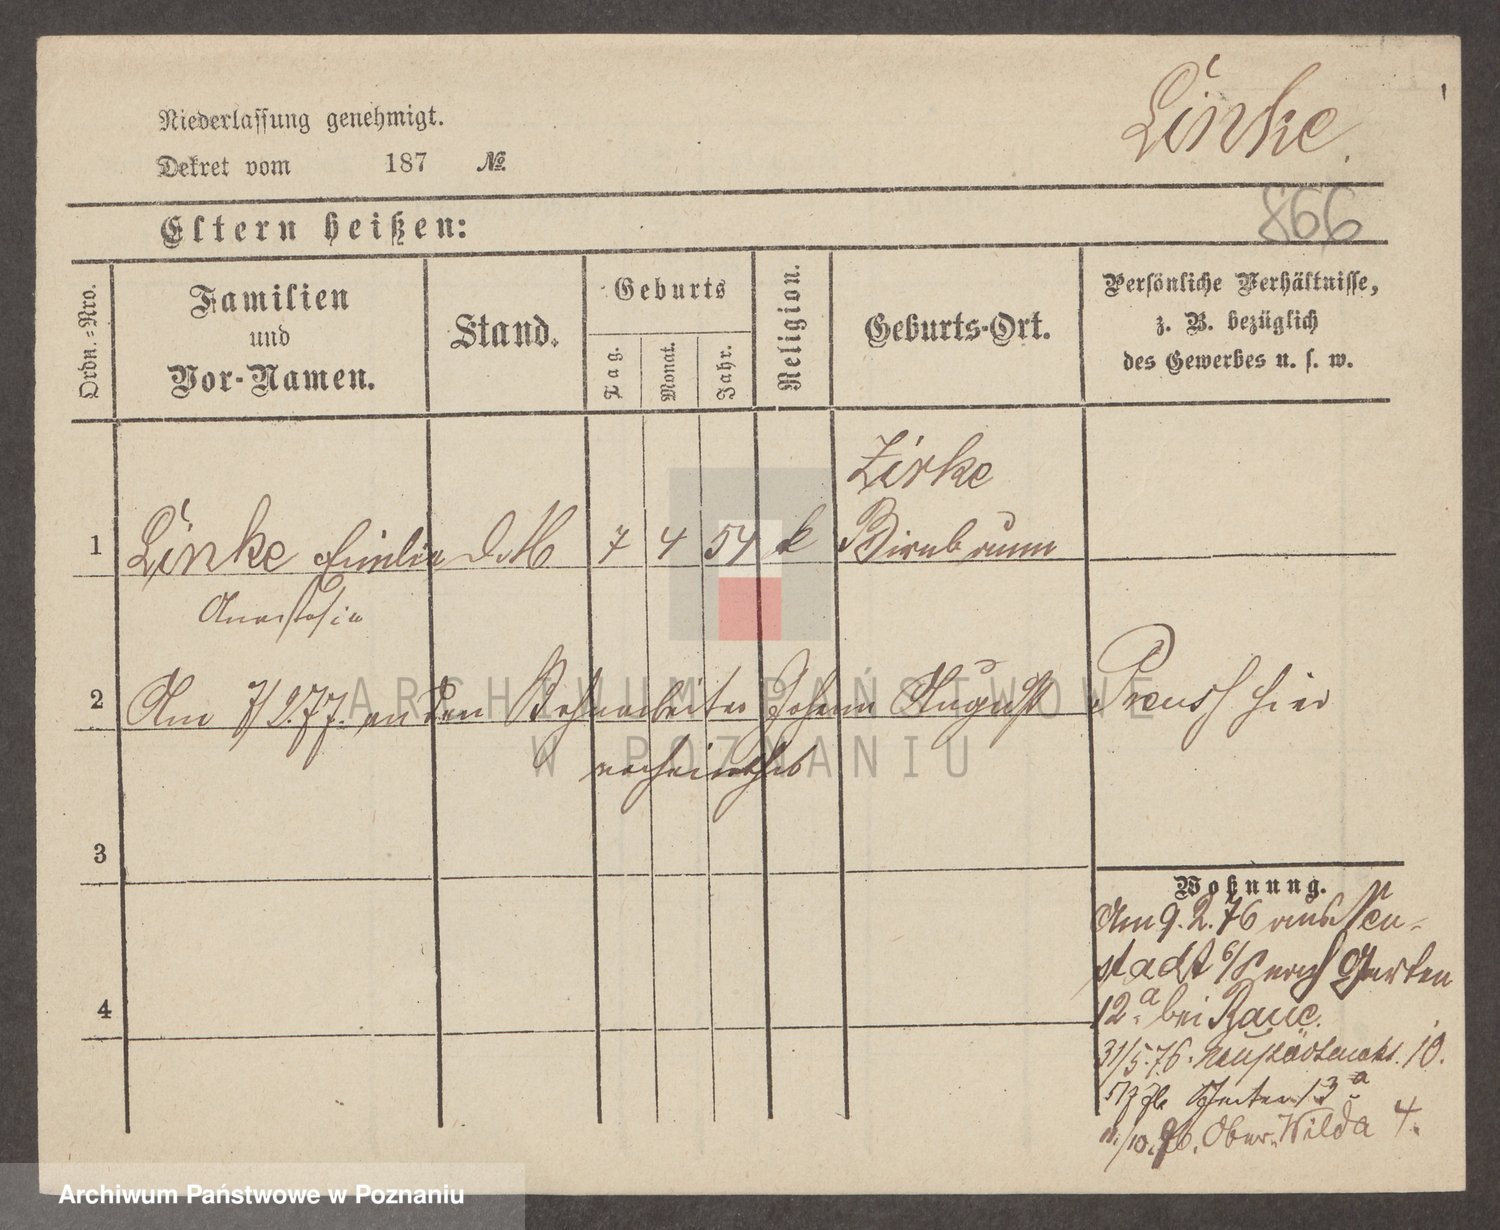 Linke
Niederlassung genehmigt.
Dekret vom 187 №
866
Eltern heißen:
Ordn.-Nro.
Familien
und
Vor-Namen.
Stand.
Geburts
Tag.
Monat.
Jahr.
Religion.
Geburts-Ort.
Persönliche Verhältnisse,
z. B. bezüglich
des Gewerbes u. s. w.
Zirke
1 Linke Emilie D. M 7 4 54 k Birnbaum
Anastasia
2 Am 7/2.77. an den Bahnarbeiter Johann August Preuss hier
verheirathet
3
Wohnung.
Am 9. 2. 76 aus Neu-
stadt Garten
12.a bei
4
31/5.76. Neustädt. 10.
Garten 13a
11./10.76. Ober-Wilda 4.
ARCHIWUM PAŃSTWOWE
W POZNANIU
Archiwum Państwowe w Poznaniu